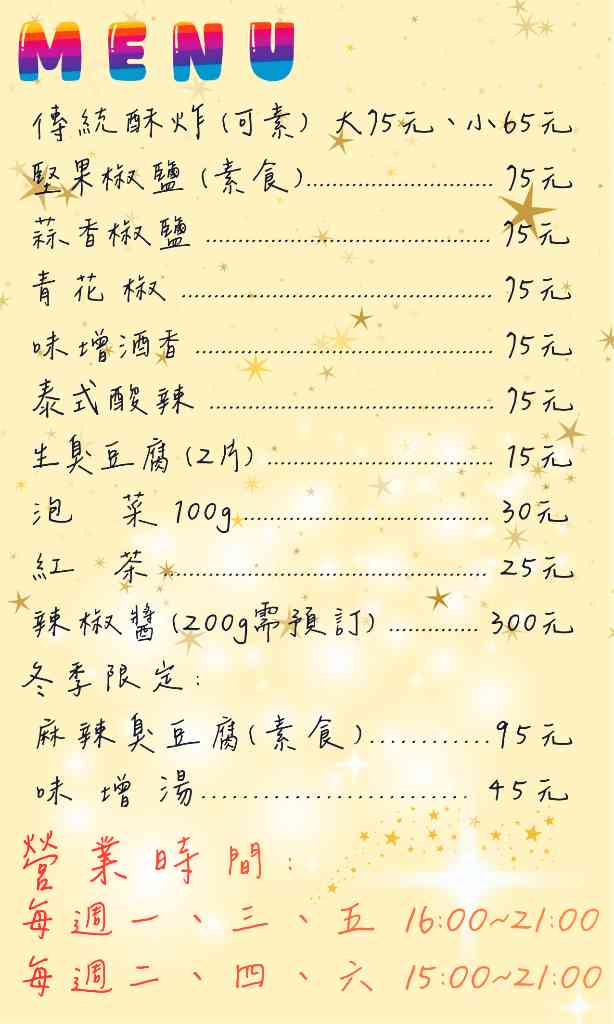 MENU
傳統酥炸(可素) 大75元、小65元
堅果椒鹽(素食)........................... 75元
蒜香椒鹽 ........................................... 75元
青花椒 ............................................... 75元
味增酒香 ............................................. 75元
泰式酸辣 ........................................... 75元
生臭豆腐(2片) .................................. 15元
泡 菜 100g..................................... 30元
紅 茶 ................................................ 25元
辣椒醬(200g需預訂) ............. 300元
冬季限定:
麻辣臭豆腐(素食)............95元
味增湯......................... 45元
營業時間:
每週一、三、五 16:00~21:00
每週二、四、六 15:00~21:00